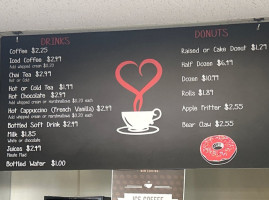 DRINKS
Coffee $2.25
Iced Coffee $2.99
Add whipped cream $.25
Chai Tea $2.99
Hot or Cold
Hot or Cold Tea $1.99
Hot Chocolate $2.99
Add whipped cream or marshmallows $0.25 each
Hot Cappuccino (French Vanilla) $2.99
Add whipped cream or marshmallows $0.25 each
Bottled Soft Drink $2.49
Milk $1.85
White or chocolate
Juices $2.49
Minute Maid
Bottled Water $1.00
DONUTS
Raised or Cake Donut $1.29
Half Dozen $6.49
Dozen $10.99
Rolls $1.89
Apple Fritter $2.55
Bear Claw $2.55
ICE COFFEE